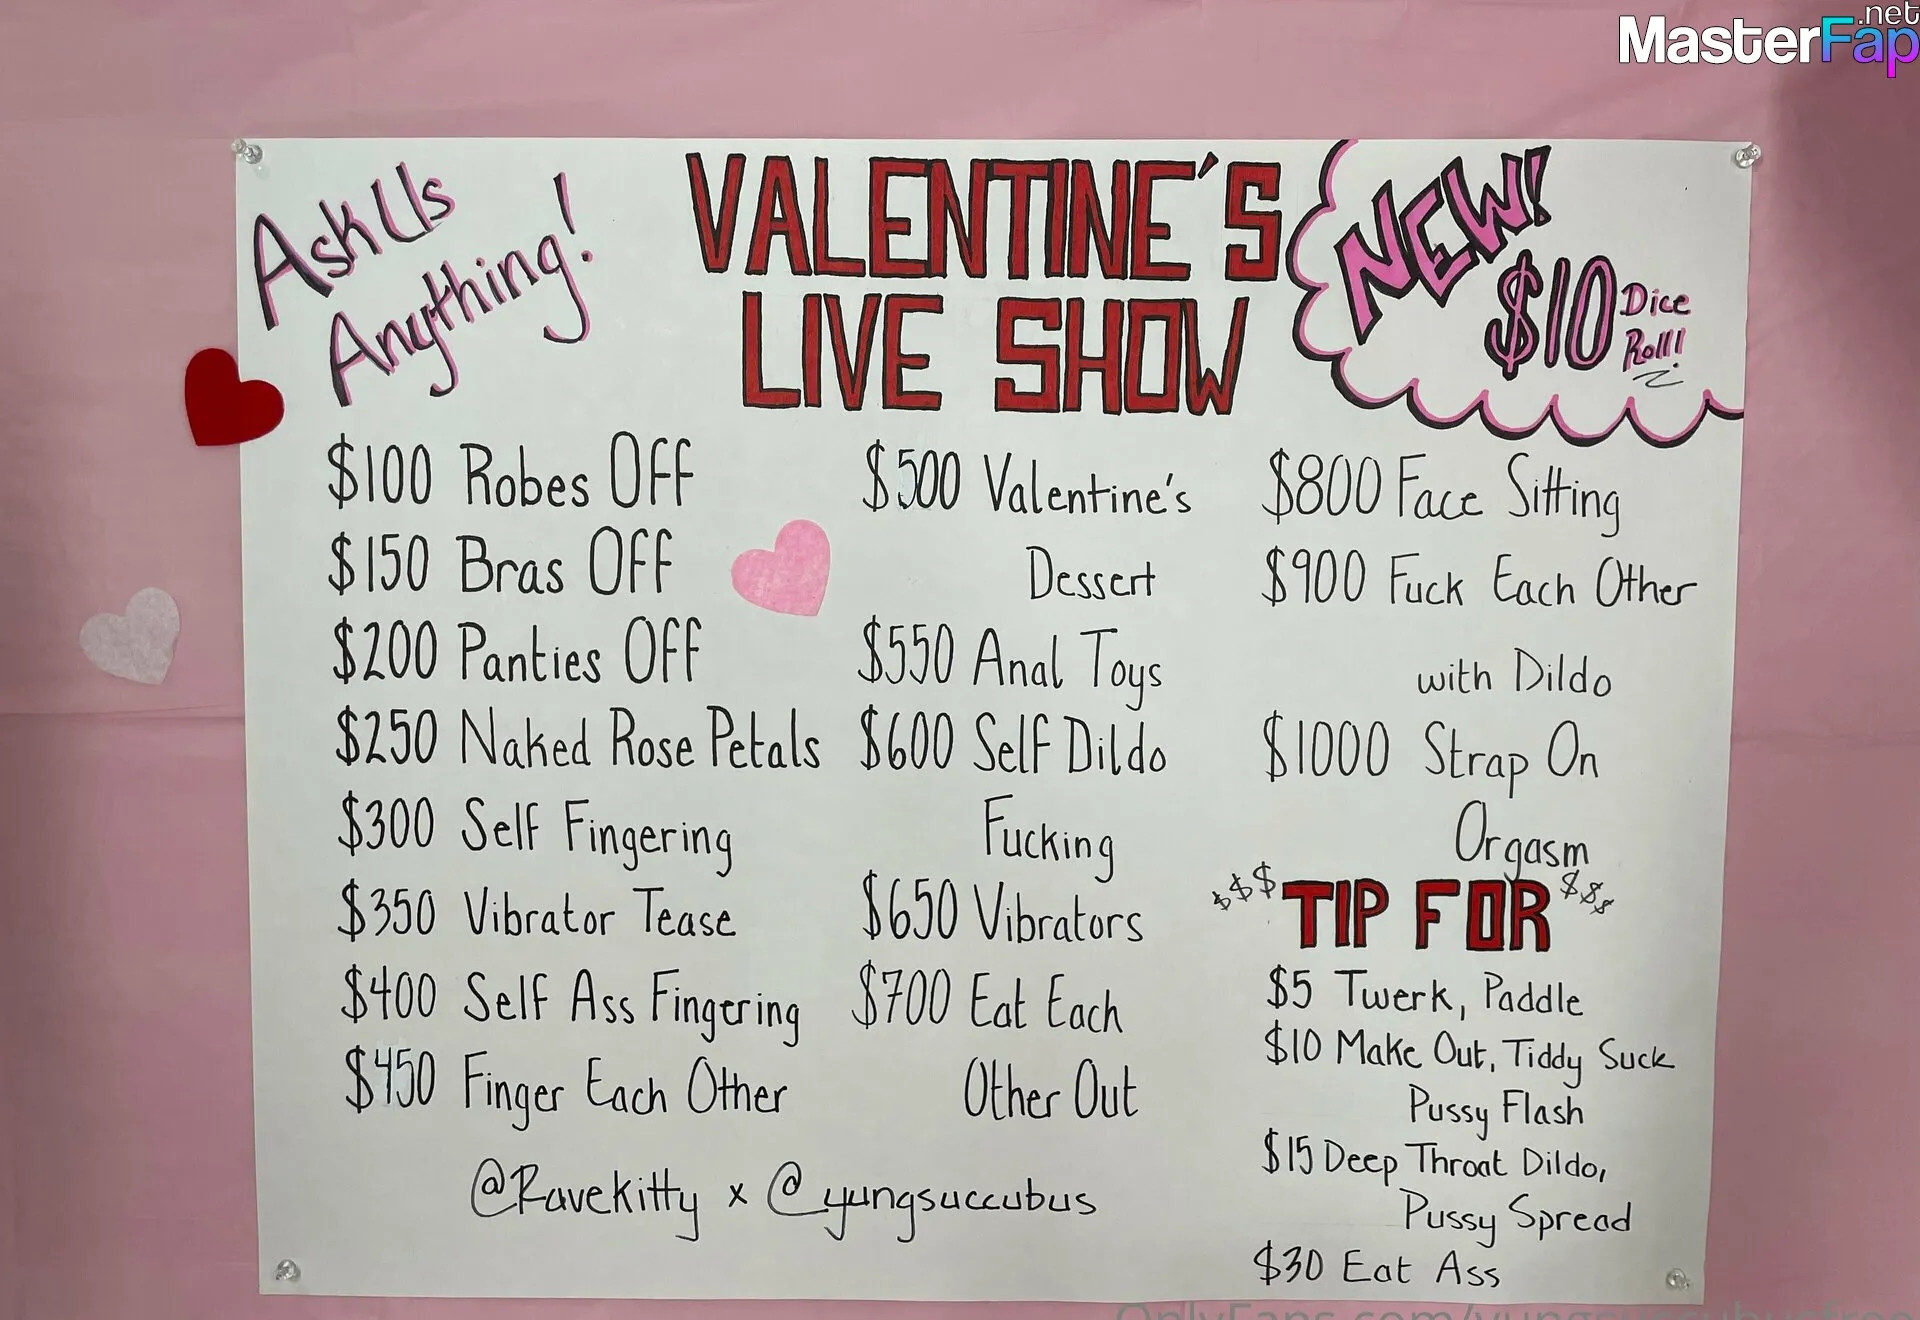 MasterFap.net
Ask Us
Anything!
VALENTINE'S
LIVE SHOW
NEW!
$10 Dice
Roll!
$100 Robes Off
$150 Bras Off
$200 Panties Off
$250 Naked Rose Petals
$300 Self Fingering
$350 Vibrator Tease
$400 Self Ass Fingering
$450 Finger Each Other
$500 Valentine's
Dessert
$550 Anal Toys
$600 Self Dildo
Fucking
$650 Vibrators
$700 Eat Each
Other Out
$800 Face Sitting
$900 Fuck Each Other
with Dildo
$1000 Strap On
Orgasm
$$$ TIP FOR $$$
$5 Twerk, Paddle
$10 Make Out, Tiddy Suck
Pussy Flash
$15 Deep Throat Dildo,
Pussy Spread
$30 Eat Ass
@Ravekitty x @yungsuccubus
OnlyFans.com/yungsuccubusfree